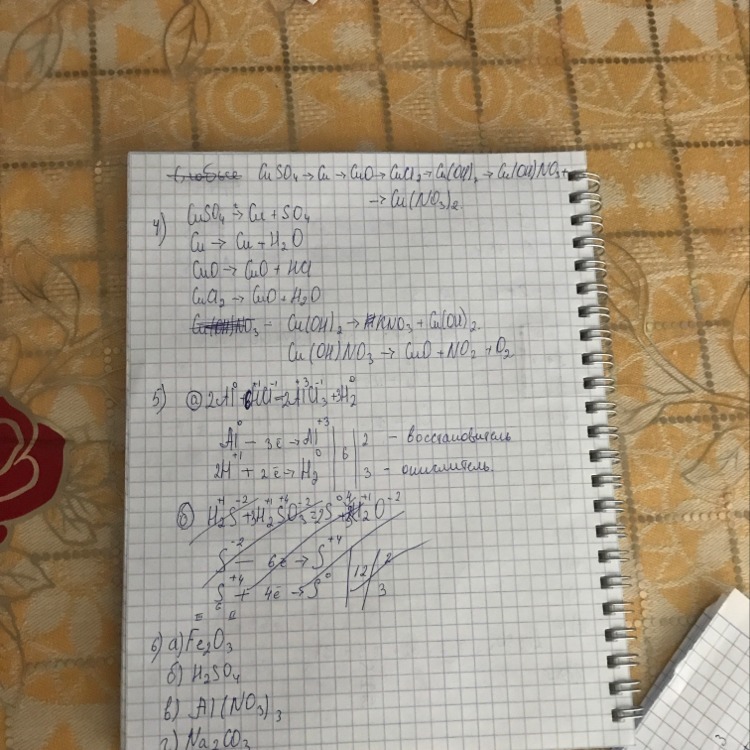 CuSO₄ → Cu → CuO → CuCl₂ → Cu(OH)₂ → Cu(OH)NO₃ →
→ Cu(NO₃)₂
4) CuSO₄ → Cu + SO₄
Cu → Cu + H₂O
CuO → CuO + HCl
CuCl₂ → CuO + H₂O
Cu(OH)NO₃ - Cu(OH)₂ → KNO₃ + Cu(OH)₂.
Cu(OH)NO₃ → CuO + NO₂ + O₂
5) а) 2Al⁰ + 6H⁺¹Cl⁻¹ = 2Al⁺³Cl₃⁻¹ + 3H₂⁰
Al⁰ - 3ē → Al⁺³ | 6 | 2 - восстановитель
2H⁺¹ + 2ē → H₂⁰ | | 3 - окислитель
б) H₂⁺¹S⁻²
S⁻² - 6ē → S⁺⁴ | 12 | 2
S⁺⁴ + 4ē → S⁰ | | 3
6) а) Fe₂O₃
б) H₂SO₄
в) Al(NO₃)₃
г) Na₂CO₃
3